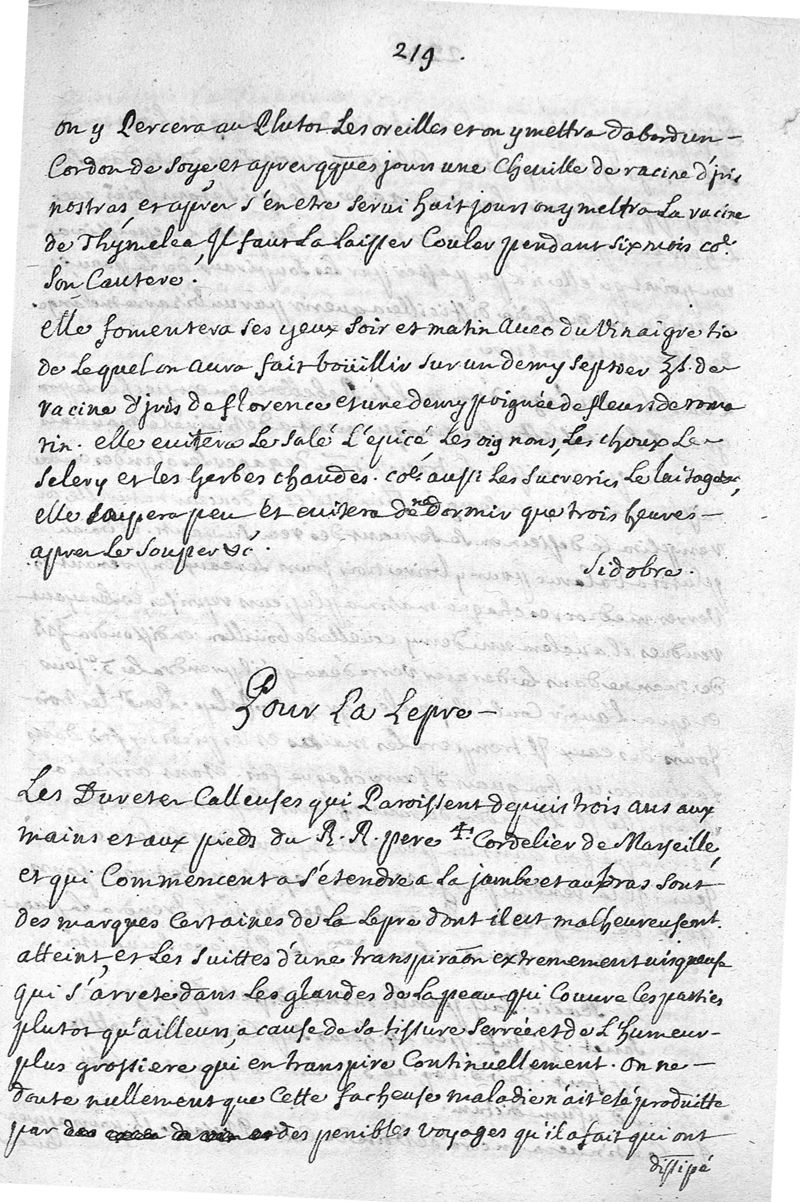 219.
on y Percera au Plutot Les oreilles et on y mettra dabord un
Cordon de Soye et aprer qques jours une Cheville de racine d'jris
nostras, et aprer s'en etre servi huit jours on y mettra La racine
de Thymelea, Jl faut La laisser Couler pendant six mois coe.
Son Cautere.
elle fomentera ses yeux soir et matin avec du Vinaigre tie
de Lequel on aura fait boüillir sur un demy septier ℥ß. de
racine d'jris de florence et une demy poignée de fleurs de roma
rin. elle evitera Le salé L'épicé Les oignons, Les choux Le
Selery et les herbes chaudes. coe aussi Les sucreries Le laitage &c,
elle soupera peu et evitera de ne dormir que trois heures
aprer Le souper &c.
Sidobre.
Pour La Lepre
Les Duretez Calleuses qui Paroissent depuis trois ans aux
mains et aux pieds du R. R. pere 4: Cordelier de Marseille,
et qui Commencent a s'étendre a la jambe et au bras sont
des marques Certaines de la Lepre dont il est malheureusemt.
atteint, et Les suittes d'une transpiraon extremement visqueuse
qui s'arrete dans Les glandes de la peau qui Couvre les parties
plutot qu'ailleurs, a cause de sa tissure serrée et de L'Humeur
plus grossiere qui en transpire Continuellement. on ne
doute nullement que Cette facheuse maladie n'ait eté produitte
par des penibles voyages qu'il a fait qui ont
dissipé